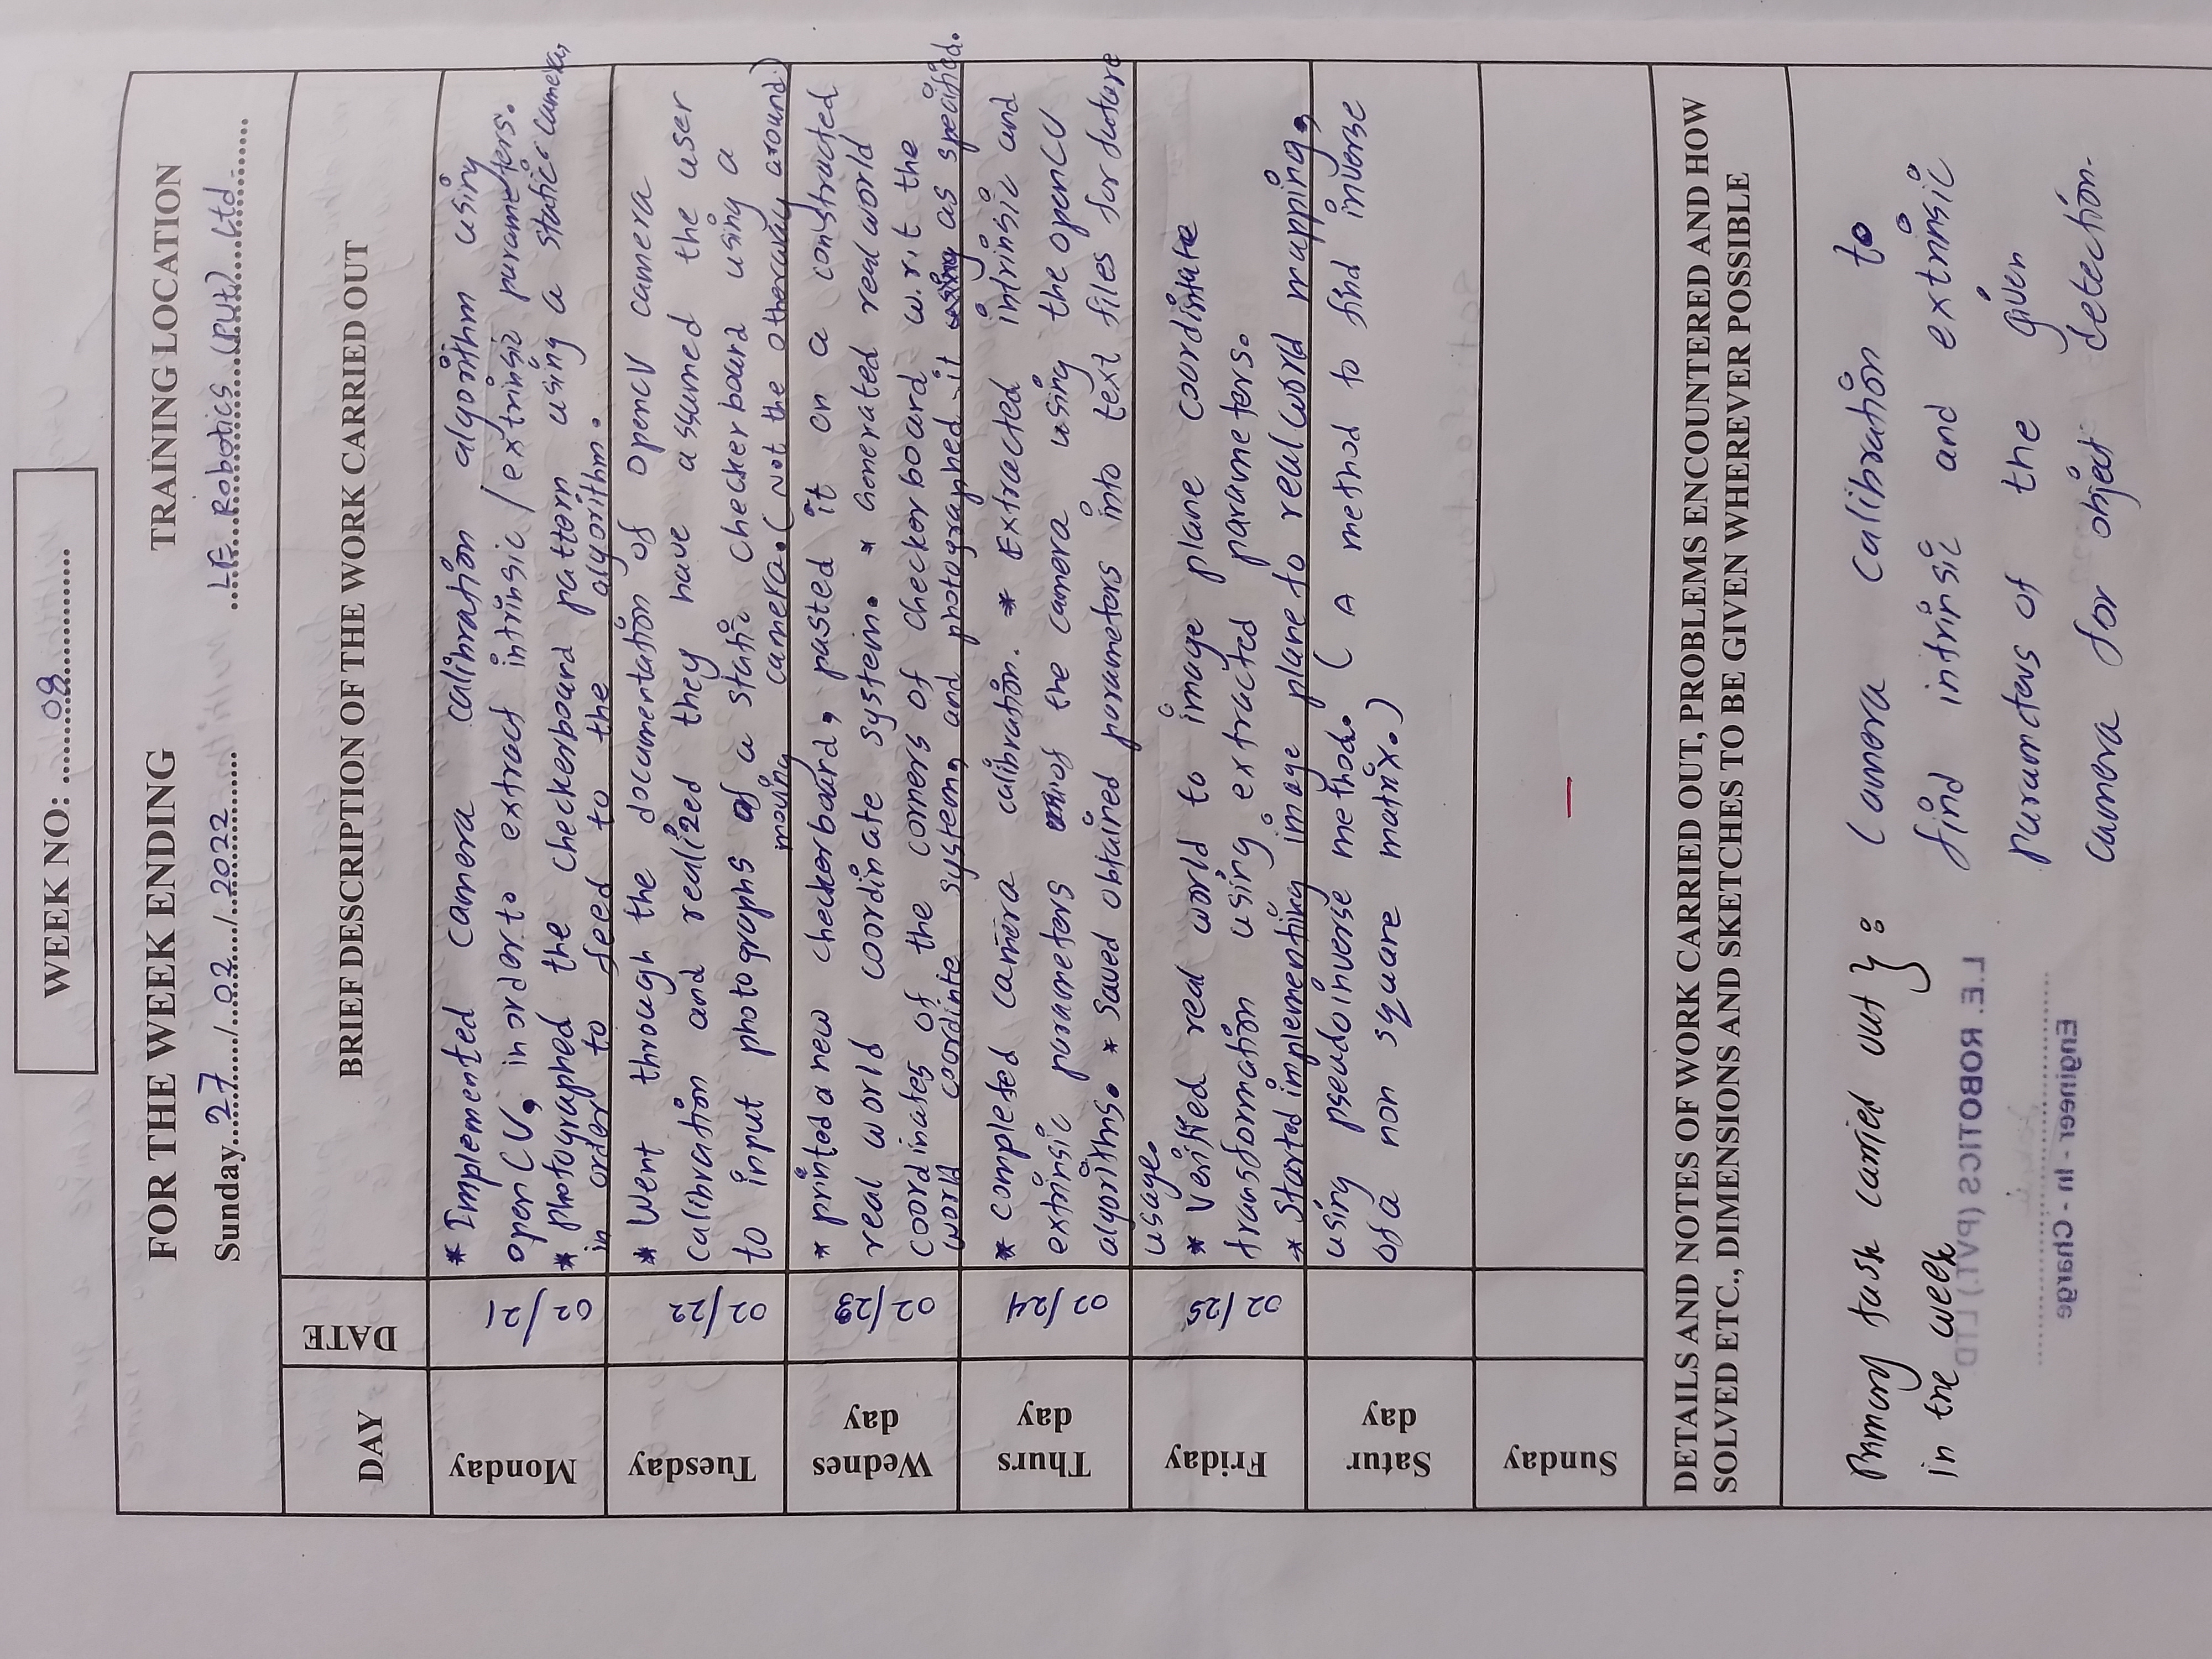 WEEK NO: 08
FOR THE WEEK ENDING
TRAINING LOCATION
Sunday 27 / 02 / 2022
LE Robotics (PVt) Ltd.
DAY
DATE
BRIEF DESCRIPTION OF THE WORK CARRIED OUT
Monday
02/21
* Implemented camera calibration algorithm using
openCV, inorderto extract intrinsic / extrinsic parameters.
* Photographed the checkerboard pattern using a static camera,
in order to feed to the algorithm.
Tuesday
02/22
* Went through the documentation of opencv camera
calibration and realized they have assumed the user
to input photographs of a static checkerboard using a
moving camera. (Not the otherway around)
Wednes
day
02/23
* printed a new checkerboard, pasted it on a constructed
real world coordinate system. * Generated real world
coordinates of the corners of checkerboard w.r.t the
world coordinte system, and photographed it as specified.
Thurs
day
02/24
* completed camera calibration. * Extracted intrinsic and
extrinsic parameters of the camera using the openCV
algorithms. * Saved obtained parameters into text files for future
usage.
Friday
02/25
* Verified real world to image plane coordintate
transformation using extracted parameters.
* Started implementing image plane to real world mapping,
Satur
day
using pseudoinverse method. ( A method to find inverse
of a non square matrix.)
Sunday
—
DETAILS AND NOTES OF WORK CARRIED OUT, PROBLEMS ENCOUNTERED AND HOW
SOLVED ETC., DIMENSIONS AND SKETCHES TO BE GIVEN WHEREVER POSSIBLE
Primary task carried out } :
in the week
Camera calibration to
find intrinsic and extrinsic
parameters of the given
camera for object detection.
L.E. ROBOTICS (PVT.) LTD
Engineer - In - Charge